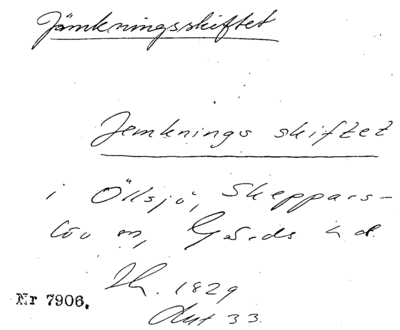 Jämkningsskiftet
Jemknings skiftet
i Öllsjö, Skeppars-
löv sn, Gärds hd.
Hh. 1829
Akt 33.
Nr 7906.